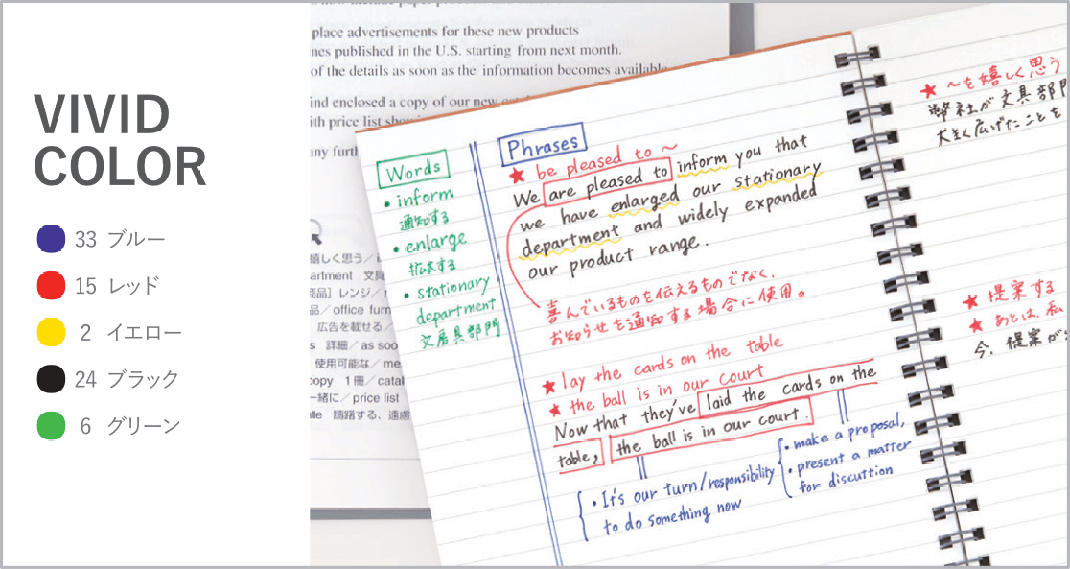 VIVID
COLOR
33 ブルー
15 レッド
2 イエロー
24 ブラック
6 グリーン
place advertisements for these new products
nes published in the U.S. starting from next month.
of the details as soon as the information becomes available
ind enclosed a copy of our new
ith price list
any furth
しく思う／
artment 文具
品］レンジ／
品／office furn
広告を載せる／
詳細／as soo
使用可能な／me
copy 1冊／catal
一緒に／price list
躊躇する、遠慮
Words
• inform
通知する
• enlarge
拡大する
• stationary
department
文房具部門
Phrases
★ be pleased to ～
We are pleased to inform you that
we have enlarged our stationary
department and widely expanded
our product range.
喜んでいるものを伝えるものでなく、
お知らせを通知する場合に使用。
★ lay the cards on the table
★ the ball is in our court
Now that they've laid the cards on the
table, the ball is in our court.
• It's our turn/responsibility
to do something now
• make a proposal,
• present a matter
for discuttion
★ ～を嬉しく思う
弊社が文具部門
大きく広げたことを
★ 提案する
★ あとは、私
今、提案が